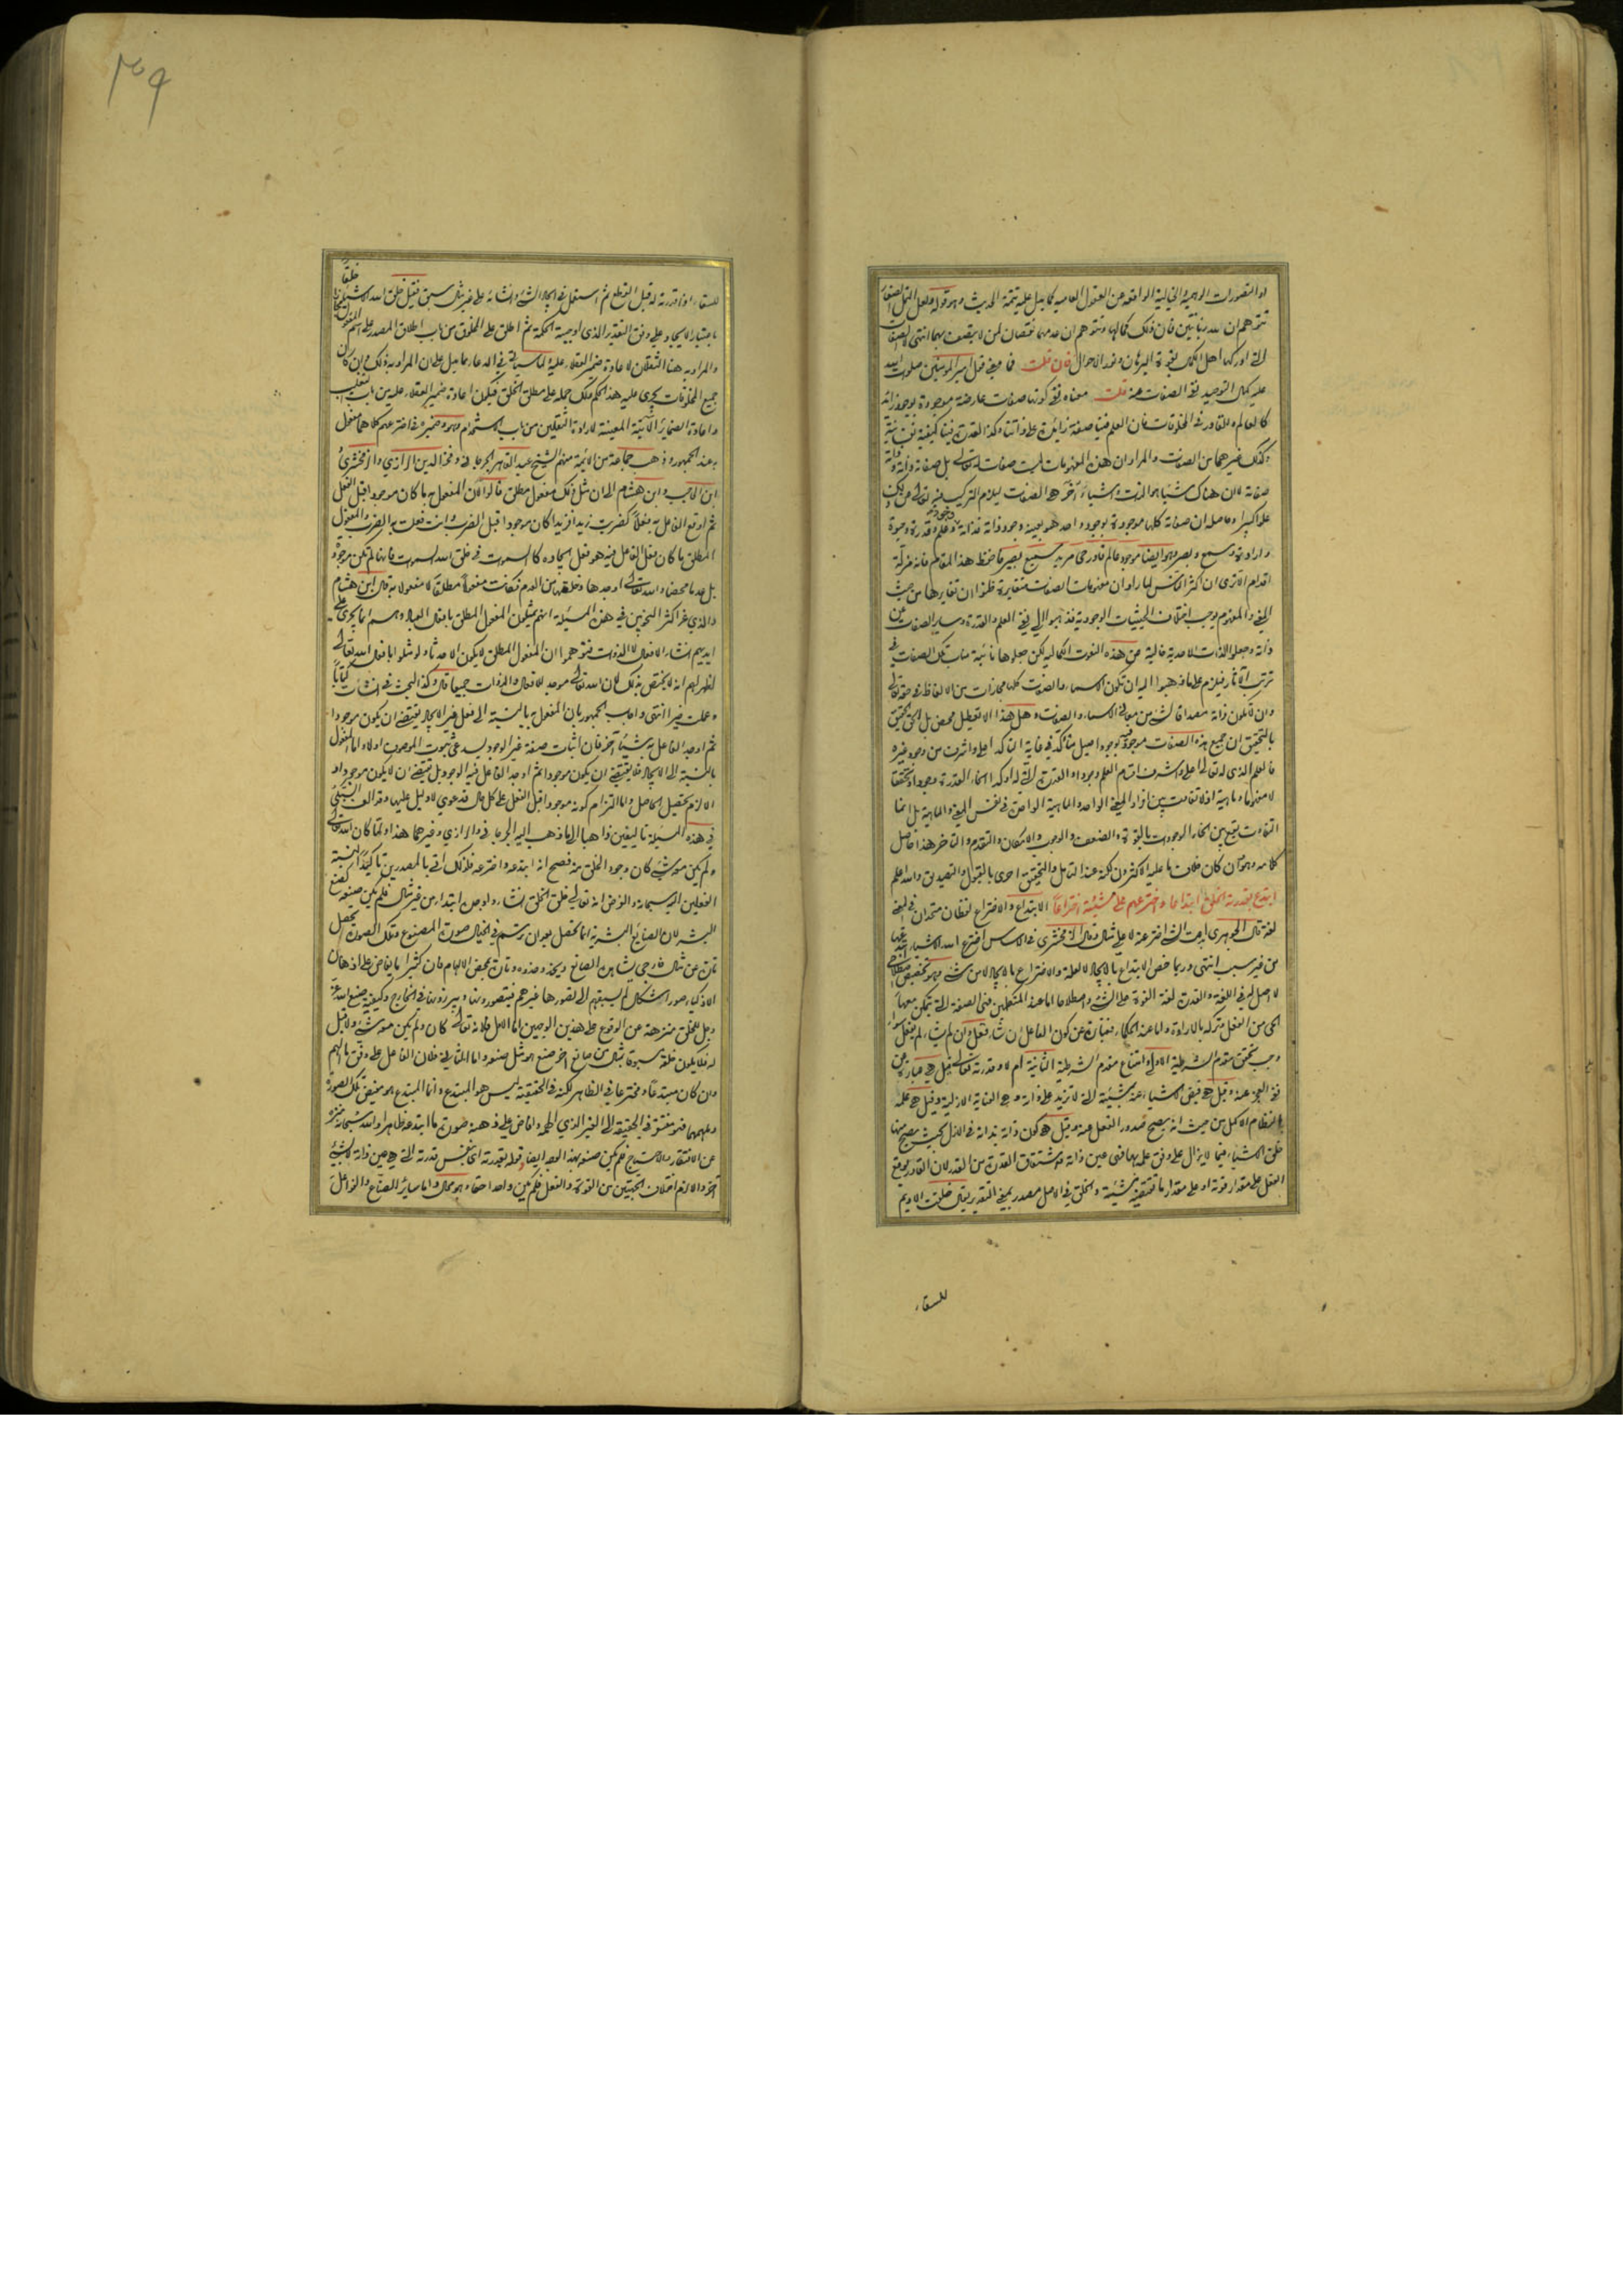 او التصورات الوهمية الخيالية الواقعة من العقول العامية كما يدل عليه تتمة الحديث وهو قوله ولعل النمل الصغار
تتوهم ان لله زبانيتين فان ذلك كمالها وتتوهم ان عدمهما نقصان لمن لا يتصف بهما انتهى
التي ادركها اهل الكمال بقوة البرهان ونور الاحوال فان قلت فما معنى قول امير المؤمنين صلوات الله
عليه كمال التوحيد نفي الصفات عنه قلت معناه نفي كونها صفات عارضة موجودة بوجود زائد
كالعالم والقادر في المخلوقات فان العلم فينا صفة زائدة على ذاتنا وكذا القدرة فينا كيفية نفسانية
وكذلك غيرهما من الصفات والمراد ان هذه المفهومات ليست صفات له تعالى بل صفاته ذاته وذاته
صفاته لا ان هناك شيئا هو الذات واشياء اخر هي الصفات ليلزم التركيب فيه تعالى عن ذلك
علوا كبيرا وحاصله ان صفاته كلها موجودة بوجود واحد هو بعينه وجود ذاته فذاته وجود وعلم وقدرة وحيوة
وارادة وسمع وبصر وهو ايضا موجود عالم قادر حي مريد سميع بصير فاحفظ هذا المقام فانه مزلة
اقدام الا ترى ان اكثر الناس لما راوا ان مفهومات الصفات متغايرة ظنوا ان تغايرها من حيث
المعنى والمفهوم يوجب اختلاف الحيثيات الوجودية فذهبوا الى نفي العلم والقدرة وسائر الصفات عن
ذاته وجعلوا الذات الاحدية خالية عن هذه النعوت الكمالية لكن جعلوها نائبة مناب تلك الصفات في
ترتب الآثار فيلزم على ما ذهبوا اليه ان تكون الاسماء والصفات كلها مجازات من الالفاظ في حقه تعالى
وان لا تكون ذاته مصداقا لشيء من معاني الاسماء والصفات وهل هذا الا تعطيل محض بل الحق الحقيق
بالتحقيق ان جميع هذه الصفات موجودة فيه بوجود اصيل متأكد في غاية التأكد اعلى واشرف من وجود غيره
فالعلم الذي له تعالى اعلى واشرف اقسام العلم وجودا والقدرة التي له اوكد انحاء القدرة وجودا وتحققا
لا مفهوما وماهية اذ لا تفاوت بين افراد المعنى الواحد والماهية الواحدة في نفس المعنى والماهية بل انما
التفاوت يقع بين انحاء الوجودات بالقوة والضعف والوجوب والامكان والتقدم والتأخر هذا حاصل
كلامه وهو وان كان خلاف ما عليه الاكثرون لكنه عند التأمل والتحقيق احرى بالقبول والتصديق والله اعلم
ابتدع بقدرته الخلق ابتداعا واخترعهم على مشيته اختراعا الابتداع والاختراع لفظان متحدان في المعنى
لغة قال الجوهري ابدعت الشيء اخترعته لا على مثال وقال الزمخشري في الاساس اخترع الله الاشياء ابتدعها
من غير سبب انتهى وربما خص الابتداع بالايجاد لا لعلة والاختراع بالايجاد لا من شيء وهو تخصيص
لا اصل له في اللغة والقدرة لغة القوة على الشيء واصطلاحا اما عند المتكلمين فهي الصفة التي يتمكن معها
الحي من الفعل وتركه بالارادة واما عند الحكماء فعبارة عن كون الفاعل ان شاء فعل وان لم يشاء لم يفعل سواء
وجب تحقق مقدم الشرطية الاولى وامتناع مقدم الشرطية الثانية ام لا وقدرته تعالى قيل هي عبارة عن
نفي العجز عنه وقيل هي فيض الاشياء عنه بمشيئته التي لا تزيد على ذاته وهي العناية الازلية وقيل هي علمه
بالنظام الاكمل من حيث انه يصح صدور الفعل عنه وقيل هي كون ذاته بذاته في الازل بحيث يصح منها
خلق الاشياء فيما لا يزال على وفق علمه بها فهي عين ذاته واشتقاق القدرة من القدر لان القادر يوقع
الفعل على مقدار قوته او على مقدار ما تقتضيه مشيته والخلق في الاصل مصدر بمعنى التقدير يقال خلقت الاديم
للسقاء
٣٠٩
للسقاء اذا قدرته له قبل القطع ثم استعمل في ايجاد الشيء وانشائه على غير مثال سبق فقيل خلق الله الاشياء خلقا
باعتبار الايجاد على وفق التقدير الذي اوجبته الحكمة ثم اطلق على المخلوق من باب اطلاق المصدر على اسم المفعول
والمراد به هنا الثقلان لاعادة ضمير العقلاء عليه ولما سيأتي في الدعاء مما يدل على ان المراد به ذلك وان كان
جميع المخلوقات يجري عليه هذا الحكم ولك حمله على مطلق الخلق فيكون اعادة ضمير العقلاء عليه من باب التغليب
واعادة الضمائر الآتية المعينة لارادة الثقلين من باب الاستخدام وهو وضميره في اخترعهم كلاهما مفعول
به عند الجمهور وذهب جماعة من الائمة منهم الشيخ عبد القاهر الجرجاني وفخر الدين الرازي والزمخشري
ابن الحاجب وابن هشام الى ان مثل ذلك مفعول مطلق قالوا لان المفعول به ما كان موجودا قبل الفعل
ثم اوقع الفاعل به فعلا كضربت زيدا فزيدا كان موجودا قبل الضرب وانت فعلت به الضرب والمفعول
المطلق ما كان فعل الفاعل فيه هو فعل ايجاده كالسموات في خلق الله السموات فانها لم تكن موجودة
بل عدما محضا والله تعالى اوجدها وخلقها من العدم فكانت مفعولا مطلقا لا مفعولا به قال ابن هشام
والذي غر اكثر النحويين في هذه المسئلة انهم يمثلون المفعول المطلق بافعال العباد وهم انما يجري على
ايديهم انشاء الافعال لا الذوات فتوهموا ان المفعول المطلق لا يكون الا حدثا ولو مثلوا بافعال الله تعالى
لظهر لهم انه لا يختص بذلك لان الله تعالى موجد للافعال والذوات جميعا قال وكذا البحث في انشأت كتابا
وعملت خيرا انتهى واجاب الجمهور بان المفعول به بالنسبة الى فعل غير الايجاد يقتضي ان يكون موجودا
ثم اوجد الفاعل به شيئا آخر فان اثبات صفة غير الوجود يستدعي ثبوت الموصوف اولا واما المفعول
بالنسبة الى الايجاد فلا يقتضي ان يكون موجودا ثم اوجد الفاعل فيه الوجود بل يقتضي ان لا يكون موجودا و
الا لزم تحصيل الحاصل واما التزام كونه موجودا قبل الفعل على كل حال فدعوى لا دليل عليها وقد الف السبكي
في هذه المسئلة تاليفين ذاهبا الى ما ذهب اليه الجرجاني والرازي وغيرهما هذا ولما كان الله تعالى
ولم يكن معه شيء كان وجود الخلق منه فصح انه ابتدعه واخترعه فلذلك اتى بالمصدرين تاكيدا لنسبة
الفعلين اليه سبحانه والغرض انه تعالى خلق الخلق انشاء واوجده ابتداء من غير مثال فلم يكن صنعه كصنع
البشر لان الصنايع البشرية انما تحصل بعد ان ترتسم في الخيال صورة المصنوع وتلك الصورة تحصل
تارة عن مثال خارجي يشاهده الصانع ويحذو حذوه وتارة بمحض الالهام فان كثيرا ما يفاض على اذهان
الاذكياء صور اشكال لم يسبقهم الى تصورها غيرهم فيتصورونها ويبرزونها في الخارج وكيفية صنع الله عز
وجل للخلق منزهة عن الوقوع على هذين الوجهين اما الاول فلانه تعالى كان ولم يكن معه شيء ولا قبل
له فلا يكون خلقه مسبوقا بمثال من صانع آخر صنع هو مثل صنعه واما الثاني فلان الفاعل على وفق ما الهم
وان كان مبتدعا ومخترعا في الظاهر لكنه في الحقيقة ليس هو المبتدع وانما المبتدع هو مفيض تلك الصورة
وملهمها فهو مفتقر في الحقيقة الى الغير الذي الهمه وافاض على ذهنه صورة ما ابتدعه ظاهرا والله سبحانه منزه
عن الافتقار والاحتياج فلم يكن صنعه بهذا الوجه ايضا وقوله بقدرته اي بنفس قدرته التي هي عين ذاته لا بشيء
آخر والا لزم اختلاف الجهتين من القوة والفعل فلم يكن واحدا حقا وهو محال واما سائر الصناع والفواعل